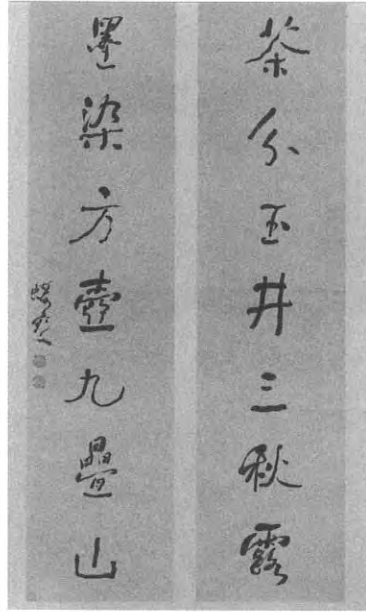 茶分玉井三秋露
墨染方壺九疊山